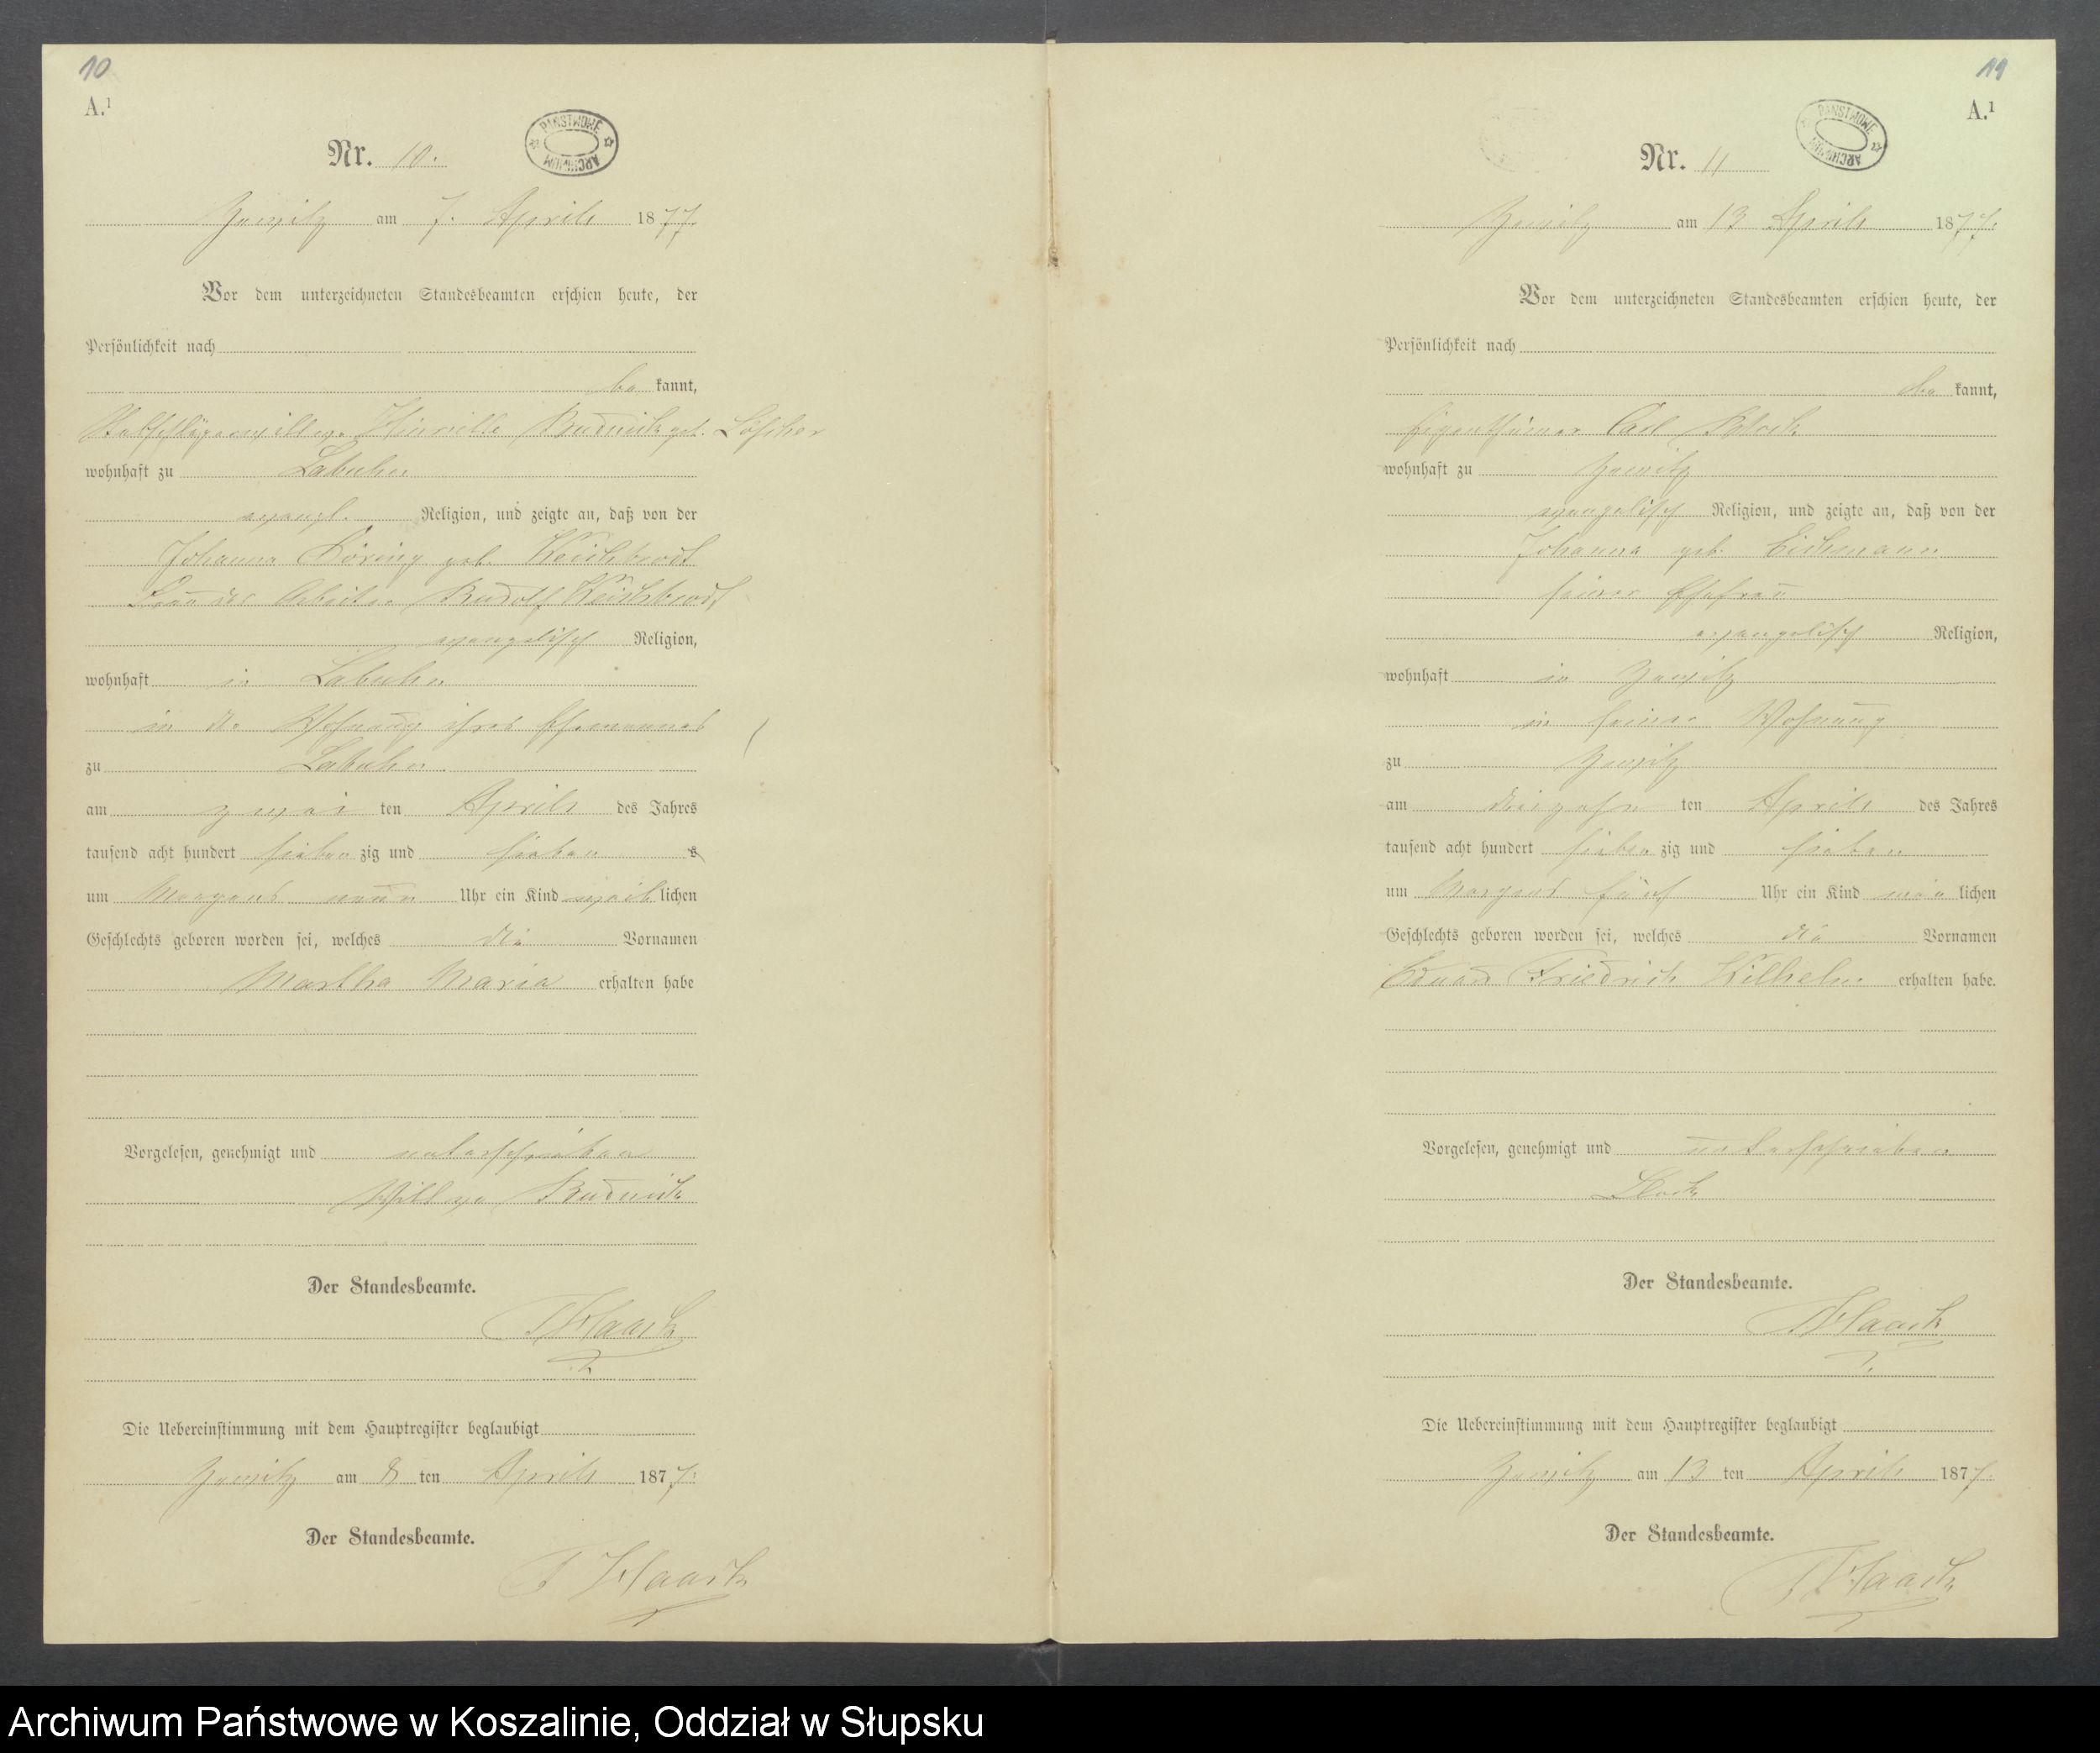 10
A.¹
PAŃSTWOWE ARCHIWUM
Nr. 10.
Zewitz am 7. April 1877.
Vor dem unterzeichneten Standesbeamten erschien heute, der
Persönlichkeit nach
be kannt,
Budnick geb. Löscher
wohnhaft zu Labuhn
evangl. Religion, und zeigte an, daß von der
Johanna Döring geb. Reichbrodt
Frau des Arbeiter Rudolf Reichbrodt,
evangelisch Religion,
wohnhaft in Labuhn
in der Wohnung ihres Ehemannes
zu Labuhn
am zwei ten April des Jahres
tausend acht hundert sieben zig und sieben
um Morgens neun Uhr ein Kind weib lichen
Geschlechts geboren worden sei, welches die Vornamen
Martha Maria erhalten habe
Vorgelesen, genehmigt und unterschrieben
Wittwe Budnick
Der Standesbeamte.
Haack
Die Uebereinstimmung mit dem Hauptregister beglaubigt
Zewitz am 8 ten April 1877.
Der Standesbeamte.
Haack
11
A.¹
PAŃSTWOWE ARCHIWUM
Nr. 11
Zewitz am 13 April 1877.
Vor dem unterzeichneten Standesbeamten erschien heute, der
Persönlichkeit nach
be kannt,
Eigenthümer Carl
wohnhaft zu Zewitz
evangelisch Religion, und zeigte an, daß von der
Johanna geb. Eichmann
seiner Ehefrau
evangelisch Religion,
wohnhaft in Zewitz
in seiner Wohnung
zu Zewitz
am dreizehn ten April des Jahres
tausend acht hundert sieben zig und sieben
um Morgens fünf Uhr ein Kind män lichen
Geschlechts geboren worden sei, welches die Vornamen
Eduard Friedrich Wilhelm erhalten habe.
Vorgelesen, genehmigt und unterschrieben
Der Standesbeamte.
Haack
Die Uebereinstimmung mit dem Hauptregister beglaubigt
Zewitz am 13 ten April 1877.
Der Standesbeamte.
Haack
Archiwum Państwowe w Koszalinie, Oddział w Słupsku